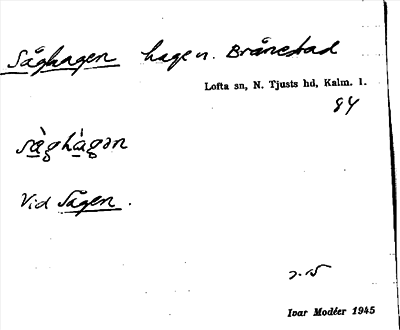 Såghagen hage n. Brånestad
Lofta sn, N. Tjusts hd, Kalm. l.
84
så̀ghàgən
Vid Sågen.
Ivar Modéer 1945